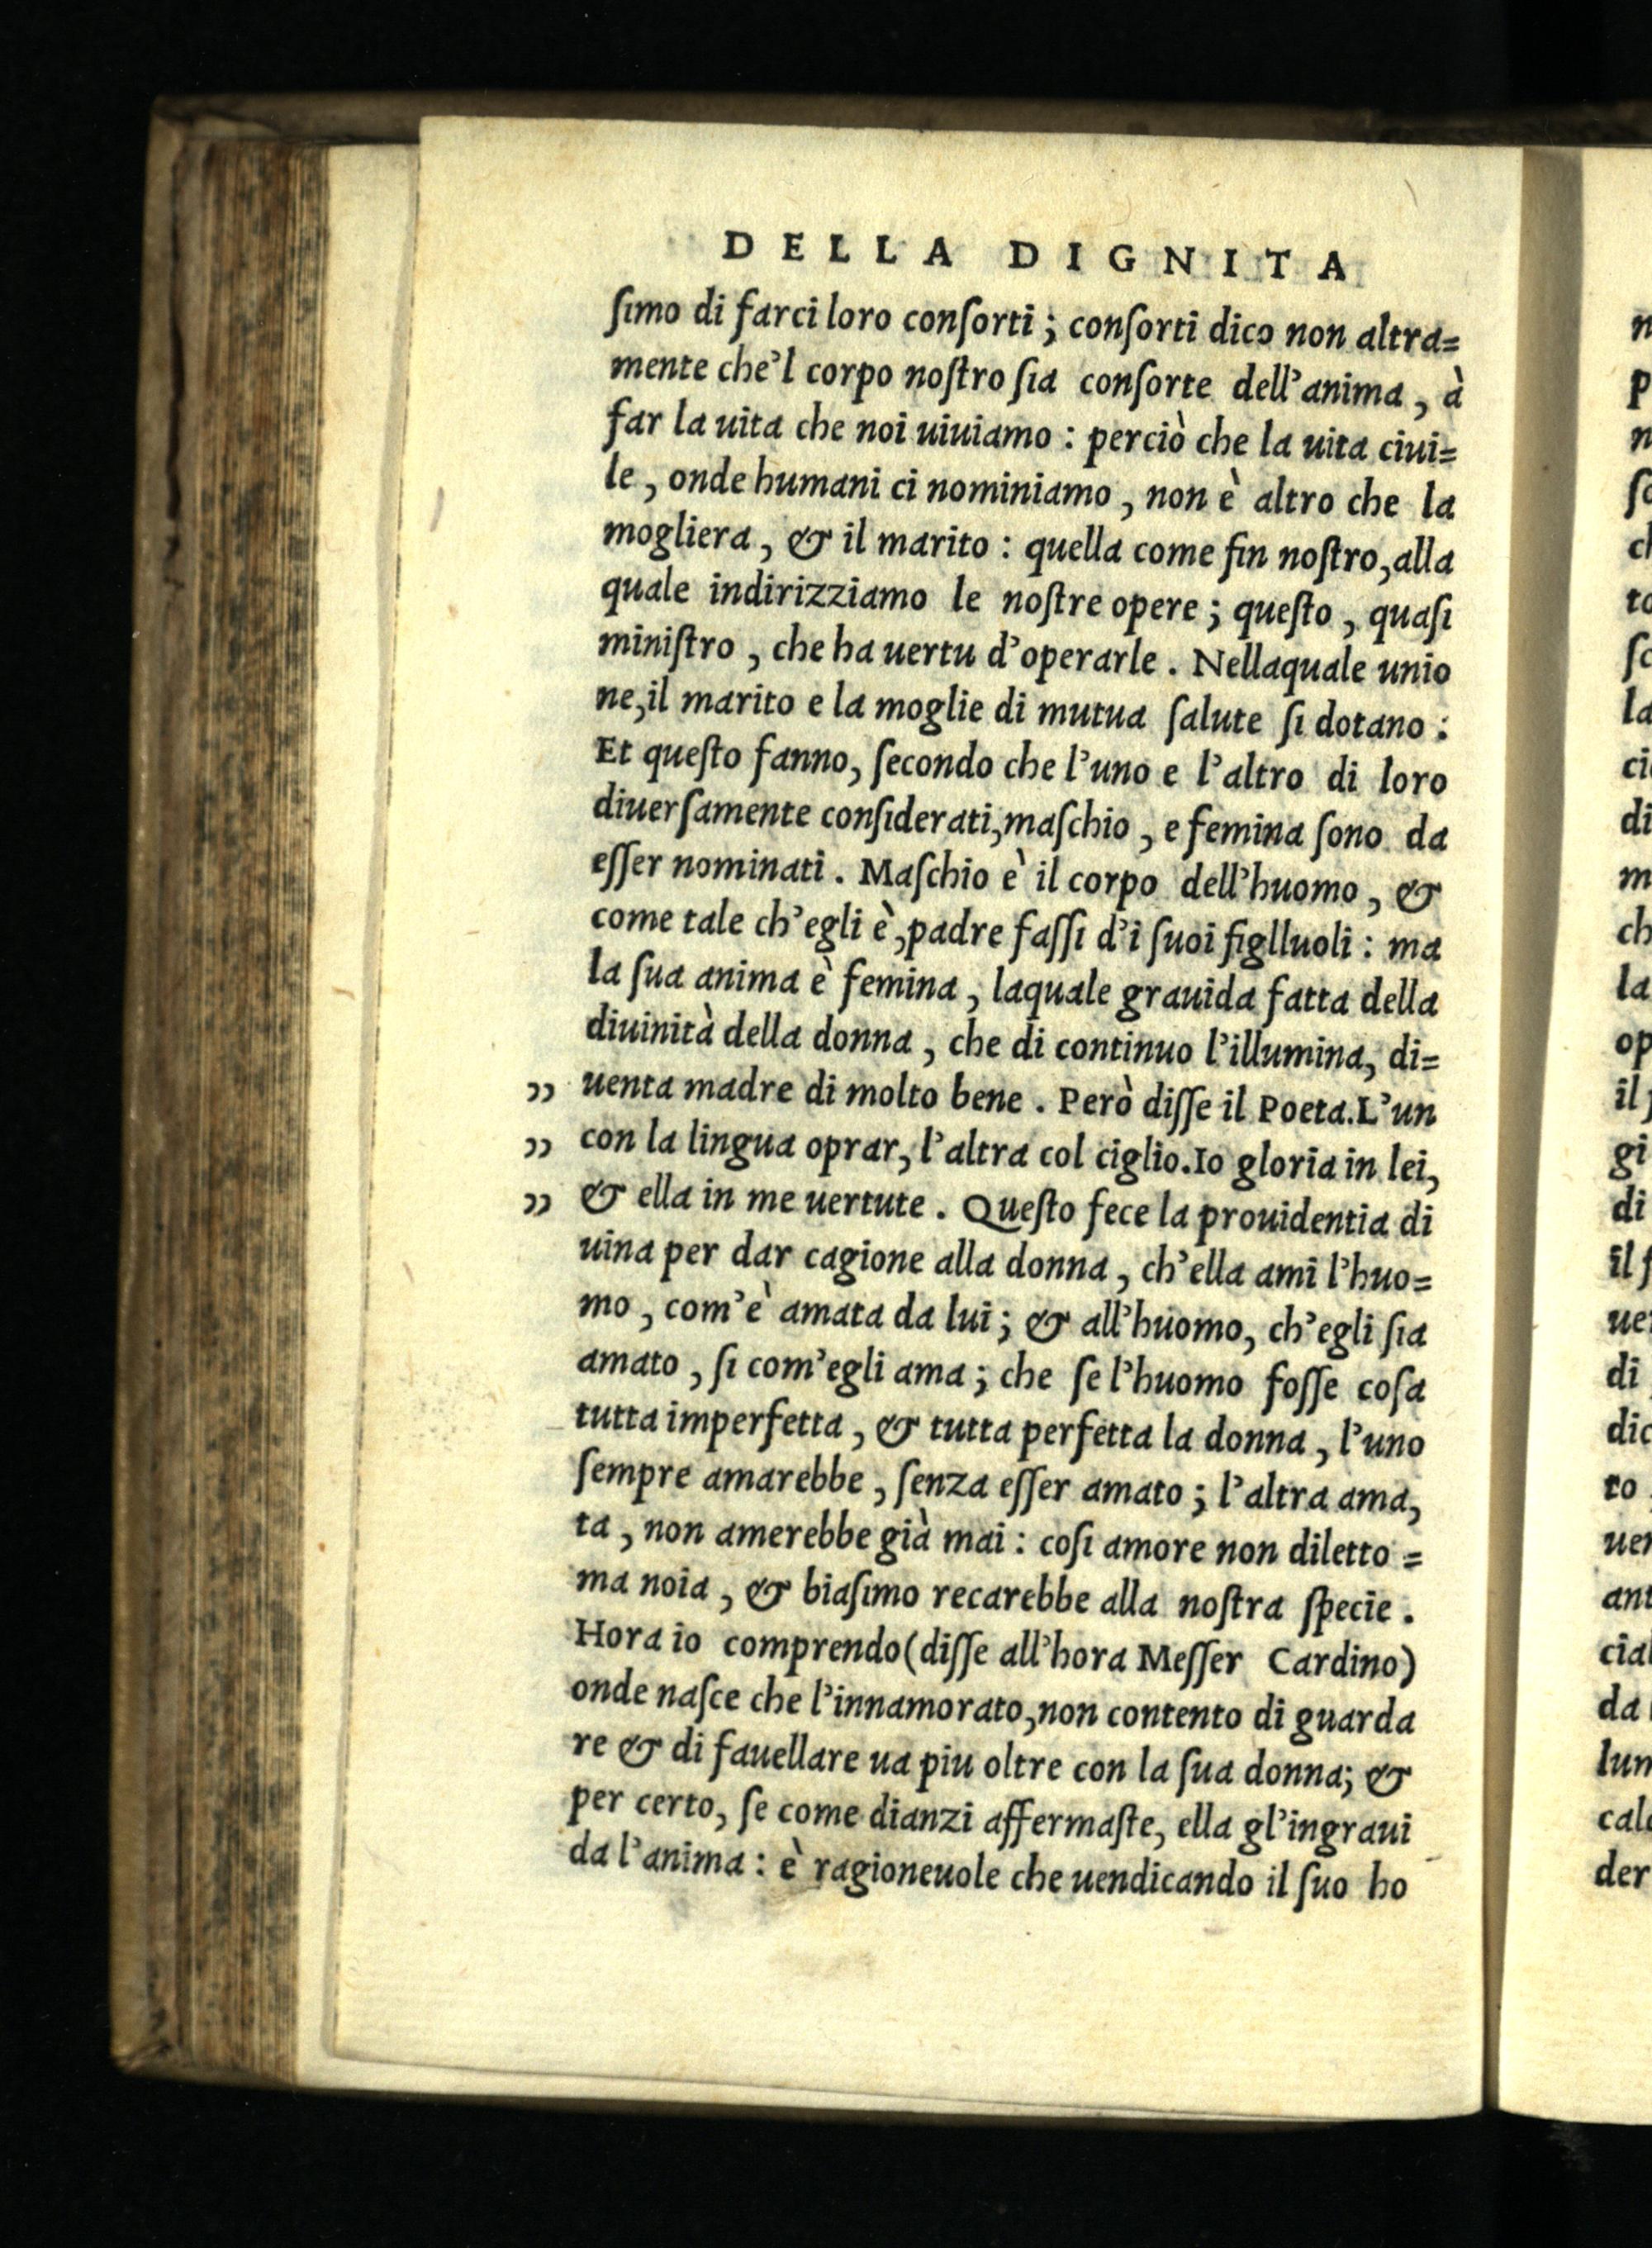 DELLA DIGNITA
ſimo di farci loro conſorti; conſorti dico non altra=
mente che'l corpo noſtro ſia conſorte dell'anima, à
far la uita che noi uiuiamo: perciò che la uita ciui=
le, onde humani ci nominiamo, non è altro che la
mogliera, & il marito: quella come fin noſtro, alla
quale indirizziamo le noſtre opere; queſto, quaſi
miniſtro, che ha uertu d'operarle. Nellaquale unio
ne, il marito e la moglie di mutua ſalute ſi dotano:
Et queſto fanno, ſecondo che l'uno e l'altro di loro
diuerſamente conſiderati, maſchio, e femina ſono da
eſſer nominati. Maſchio è il corpo dell'huomo, &
come tale ch'egli è, padre faſſi d'i ſuoi figlluoli: ma
la ſua anima è femina, laquale grauida fatta della
diuinità della donna, che di continuo l'illumina, di=
„ uenta madre di molto bene. Però diſſe il Poeta. L'un
„ con la lingua oprar, l'altra col ciglio. Io gloria in lei,
„ & ella in me uertute. Queſto fece la prouidentia di
uina per dar cagione alla donna, ch'ella ami l'huo=
mo, com'è amata da lui; & all'huomo, ch'egli ſia
amato, ſi com'egli ama; che ſe l'huomo foſſe coſa
tutta imperfetta, & tutta perfetta la donna, l'uno
ſempre amarebbe, ſenza eſſer amato; l'altra ama,
ta, non amerebbe già mai: coſi amore non diletto =
ma noia, & biaſimo recarebbe alla noſtra ſpecie.
Hora io comprendo (diſſe all'hora Meſſer Cardino)
onde naſce che l'innamorato, non contento di guarda
re & di fauellare ua piu oltre con la ſua donna; &
per certo, ſe come dianzi affermaſte, ella gl'ingraui
da l'anima: è ragioneuole che uendicando il ſuo ho
n
p
n
ſc
ch
to
ſc
la
ci
di
m
ch
la
op
il
gi
di
il
ue
di
dic
to
uer
ant
cial
da
lum
cal
der